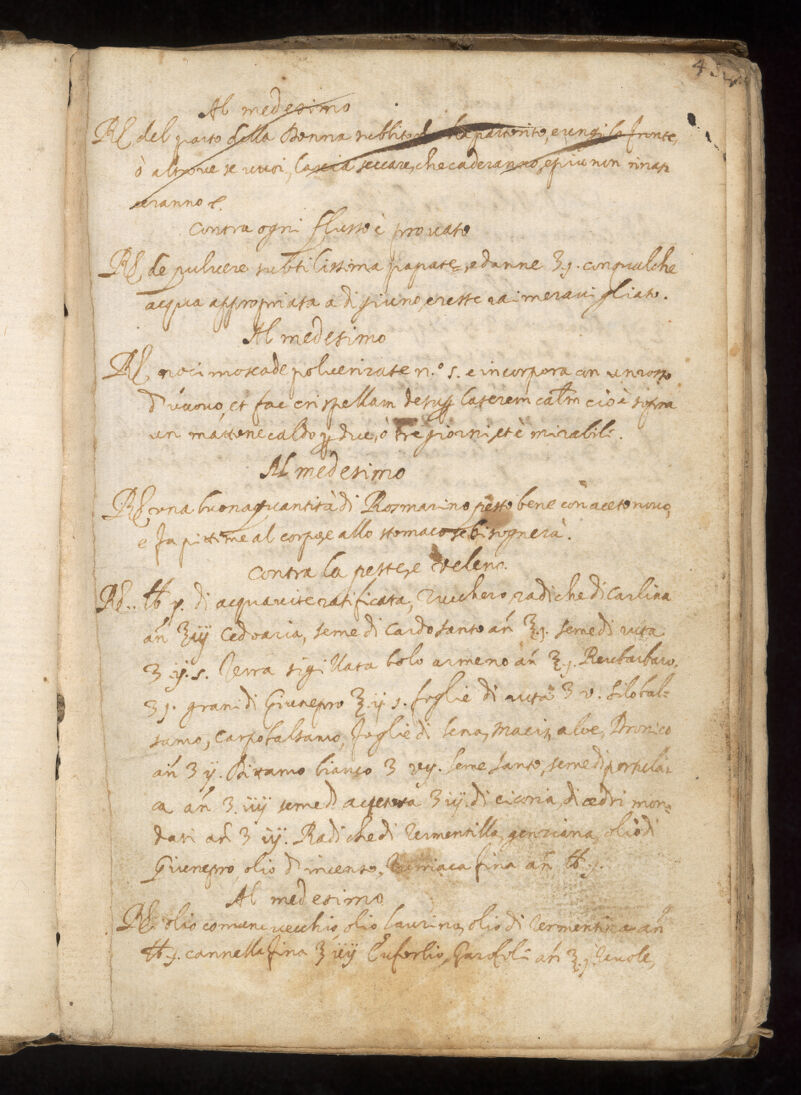 4
Al medesimo
R. del parto della Donna subbito ha partorito, e ungi la fronte,
ò altroue se vuoi, lascia seccare, che caderanno, e piu non rinas
ceranno
Contra ogni flusso è prouato
R. de puluere subtilissima papate, e danne ʒ.j. con qualche
acqua appropriata a digiuno, e resterai merauigliato.
Al medesimo
R. noci moscade poluerizate n.º 5. e incorpora con un rosso
d'uuouo, et fac crispellam desup laterem calm cioè sopra
un mattone caldo p due, ò tre giorni, et è mirabile.
Al medesimo
R. una buona quantità di Rosmarino pesto bene con aceto nouo,
e fa pittime al corpo, e allo stomaco se bisognerà.
Contra la peste, e veleno.
R. ℔ j. di acquauite ratificata, Zucchero, radiche di Carlina
añ ʒ iij Cedoaria, seme di Cardo santo añ ʒ.j. seme di ruta
ʒ.ij.s. Terra sigillata bolo armeno añ ʒ.j. Reubarbaro
ʒ j. grani di Gineupro ʒ.ij s. foglie di ruta ʒ v. Silobal-
samo, Carpobalsamo, foglie di sena, Macis, aloe, Dronico
añ ʒ ij. Dittamo bianco ʒ vij. seme santo, seme di portula-
ca añ ʒ.iiij seme d acetosa ʒ iij. di cicoria, di cedri mon-
dati añ ʒ iij. Radiche di Termentilla, genziana, olio di
Gineupro olio d'incenso, Teriaca fina añ ℔ j.
Al medesimo
R. olio comune vecchio, olio laurino, olio di Termentina añ
℔.j. cannella fina ʒ iiij Euforbio, Garofoli añ ʒ.j